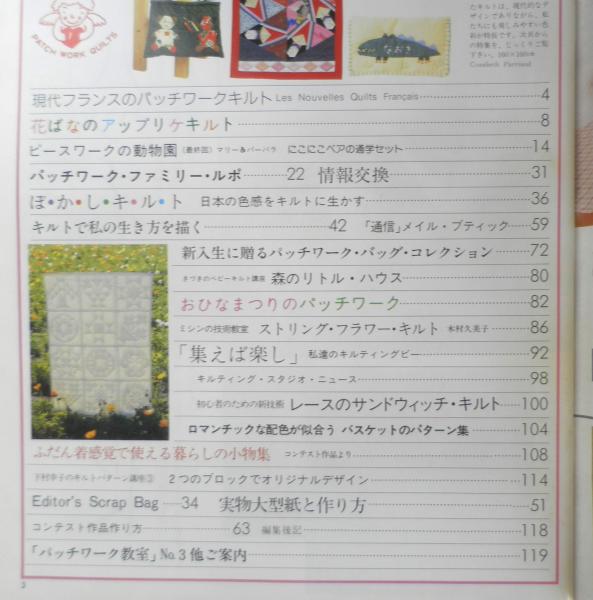 たキルトは、現代的なデ
ザインでありながら、私
たちにも親しみやすい色
彩が特長です。次頁から
の特集を、じっくりご覧
下さい。160×160cm
PATCH WORK QUILTS
なおき
現代フランスのパッチワークキルト Les Nouvelles Quilts Français 4
花ばなのアップリケキルト 8
ピースワークの動物園 (最終回) マリー&バーバラ にこにこベアの通学セット 14
パッチワーク・ファミリー・ルポ 22 情報交換 31
ぼ・か・し・キ・ル・ト 日本の色感をキルトに生かす 36
キルトで私の生き方を描く 42 「通信」メイル・ブティック 59
新入生に贈るパッチワーク・バッグ・コレクション 72
きづきのベビーキルト講座 森のリトル・ハウス 80
おひなまつりのパッチワーク 82
ミシンの技術教室 ストリング・フラワー・キルト 木村久美子 86
「集えば楽し」 私達のキルティングビー 92
キルティング・スタジオ・ニュース 98
初心者のための新技術 レースのサンドウィッチ・キルト 100
ロマンチックな配色が似合う バスケットのパターン集 104
ふだん着感覚で使える暮らしの小物集 コンテスト作品より 108
下村幸子のキルトパターン講座③ 2つのブロックでオリジナルデザイン 114
Editor's Scrap Bag 34 実物大型紙と作り方 51
コンテスト作品作り方 63 編集後記 118
「パッチワーク教室」No.3他ご案内 119
3